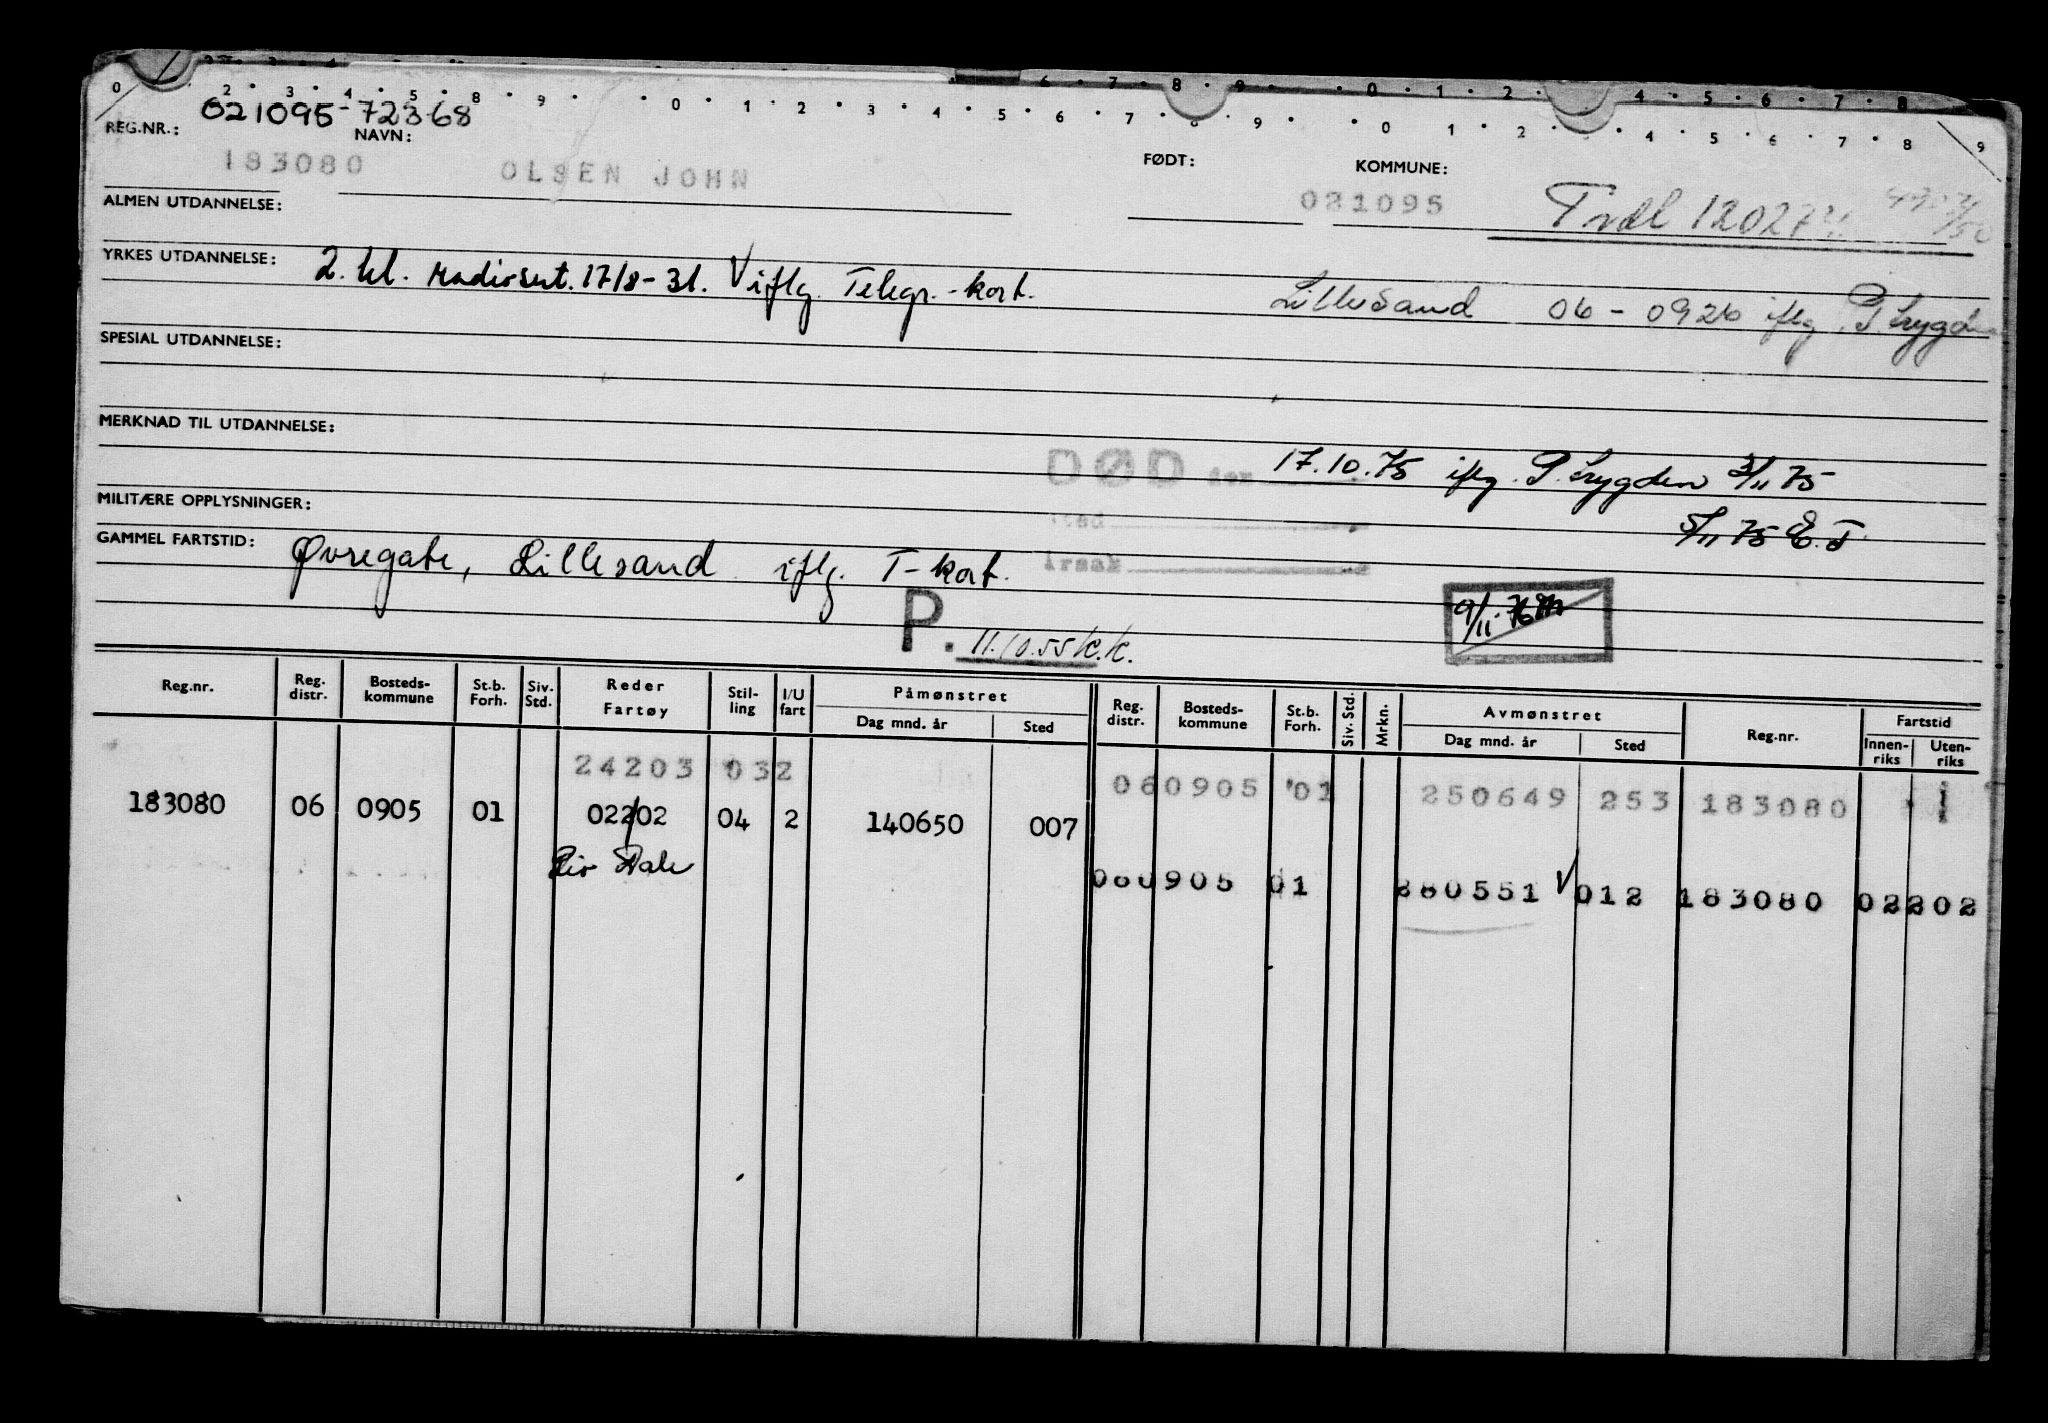 0 2 3 4 5 8 9 0 1 2 3 4 5 6 7 8 9 0 1 2 4 5 6 7 8 9
021095-72368
REG.NR.: NAVN: FØDT: KOMMUNE:
183080 OLSEN JOHN 021095
ALMEN UTDANNELSE:
YRKES UTDANNELSE: 2. kl. Radiosert. 17/8-31. V iflg. Telegr.-kort.
Lillesand 06-0926 iflg. P.trygden
SPESIAL UTDANNELSE:
MERKNAD TIL UTDANNELSE:
DØD den 17.10.75 iflg. P.trygden 3/11 75
MILITÆRE OPPLYSNINGER:
sted 5/11 75 E.T.
GAMMEL FARTSTID: Øvregate, Lillesand iflg. T-kort.
årsak
P. 11.10.55 K.K.
9/11.76
Reg.nr. Reg. distr. Bosteds-kommune St.b. Forh. Siv. Std. Reder Fartøy Stil-ling I/U fart Påmønstret Dag mnd. år Sted Reg. distr. Bosteds-kommune St.b. Forh. Siv. Std. Mrkn. Avmønstret Dag mnd. år Sted Reg.nr. Fartstid Innen-riks Uten-riks
24203 032 060905 01 250649 253 183080
183080 06 0905 01 02202 04 2 140650 007
060905 01 280551 V 012 183080 02202